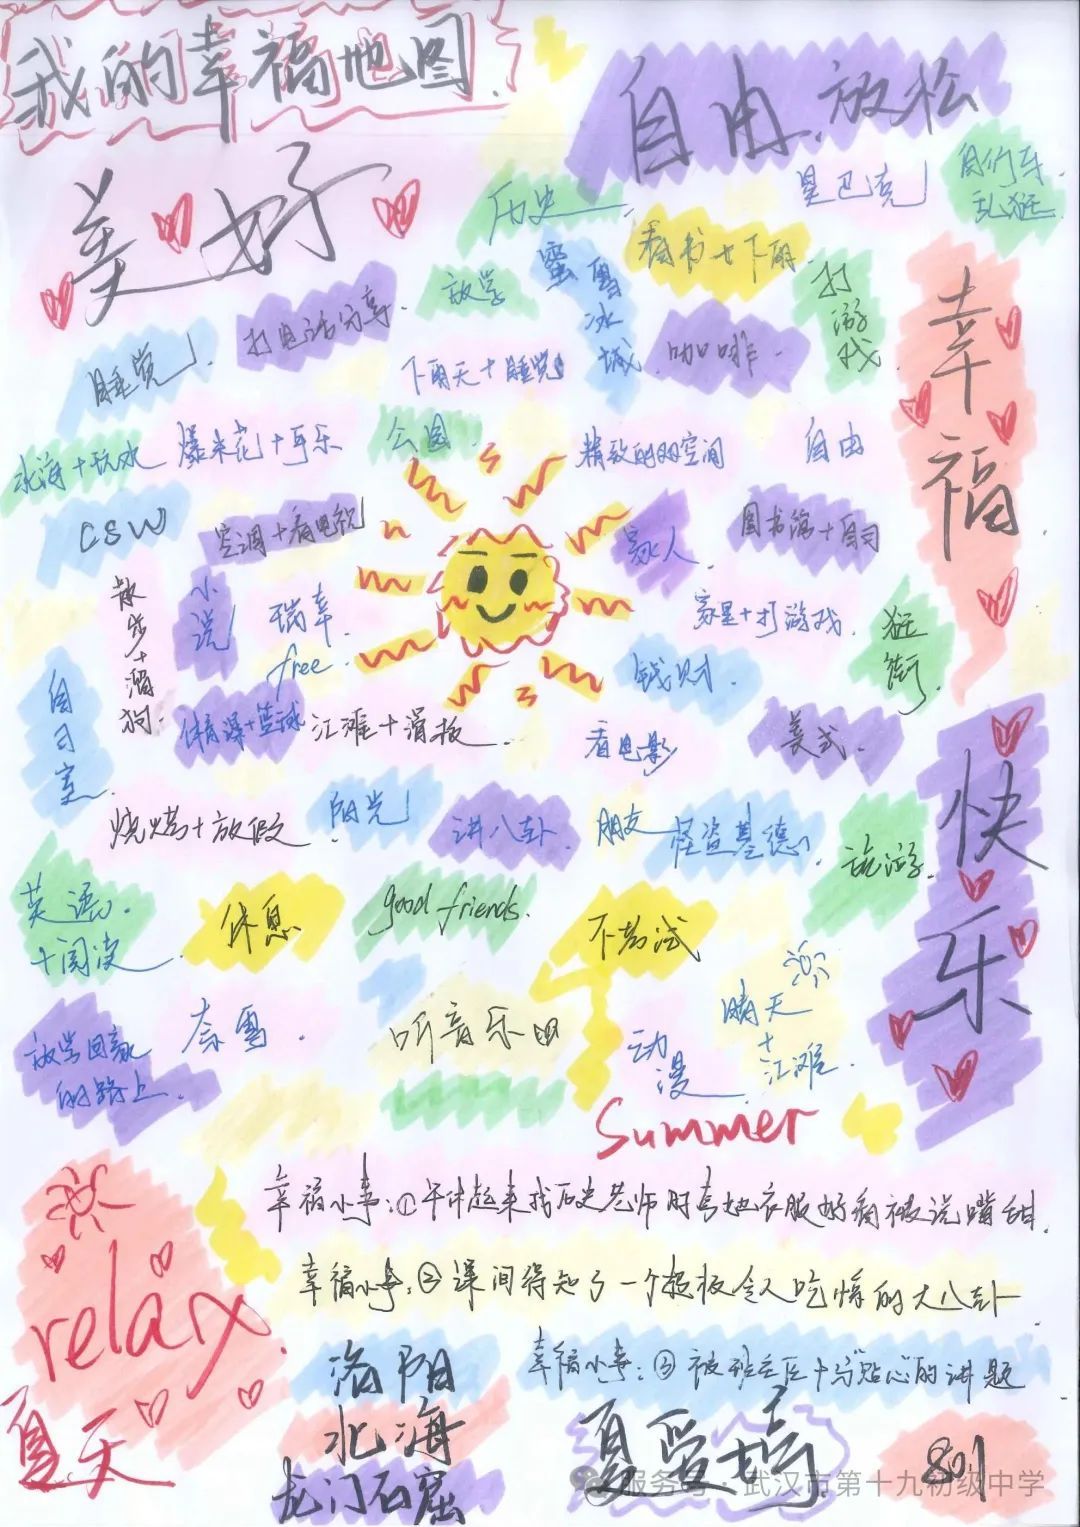 我的幸福地图.
自由.放松
美好
历史.
星巴克
自行车
乱逛
看书+下雨.
蜜雪冰城.
打游戏.
放学
打电话分享.
睡觉.
下雨天+睡觉
咖啡.
幸福
北海+玩水
爆米花+可乐
公园
精致的的空间
自由
CSW
空调+看电视
家人
图书馆+自习
散步+溜狗.
小说
瑞幸.
free.
家里+打游戏.
逛街.
钱财.
自习室.
体育课+篮球
江滩+滑板.
看电影
美式.
快乐
烧烤+放假
阳光
讲八卦.
朋友
怪盗基德.
旅游.
英语.
+阅读
休息
good friends.
不考试
晴天
+
江滩.
放学回家
的路上.
奈雪.
听音乐
动漫.
Summer
幸福小事:①午休起来找历史老师时夸她衣服好看被说嘴甜.
幸福小事:②课间得知了一个超级令人吃惊的大八卦
幸福小事:③被班主任十分"贴心"的讲题
relax.
夏天
洛阳
北海
龙门石窟
801
服务号·武汉市第十九初级中学